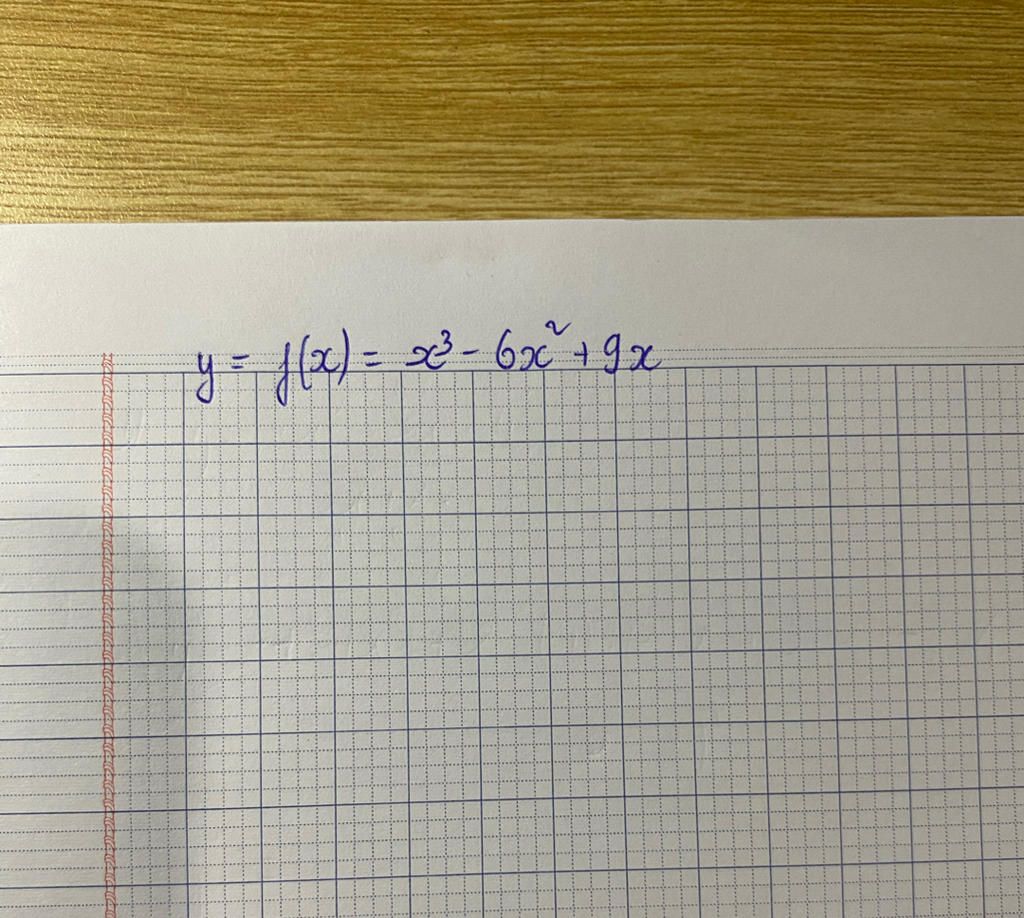 y = f(x) = x³ - 6x² + 9x